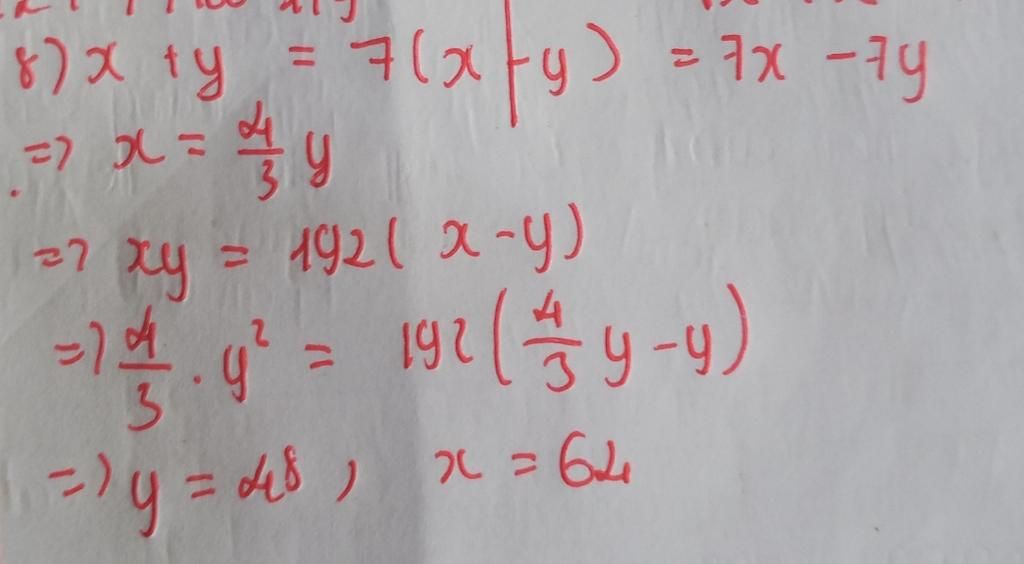 8) x + y = 7(x - y) = 7x - 7y
=> x = 4/3 y
=> xy = 192( x - y)
=> 4/3 . y² = 192(4/3 y - y)
=> y = 48, x = 64